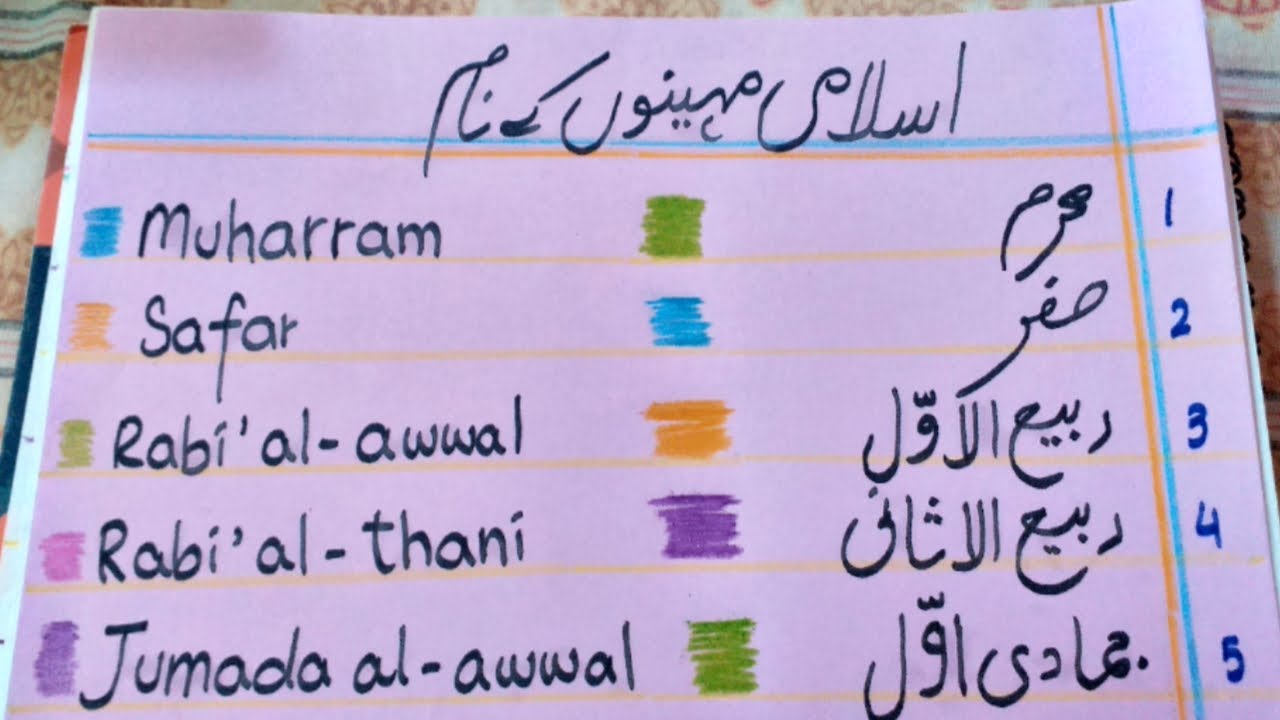 اسلامی مہینوں کے نام
Muharram محرم 1
Safar صفر 2
Rabi' al-awwal ربیع الاوّل 3
Rabi' al-thani ربیع الاثانی 4
Jumada al-awwal جمادی اوّل 5